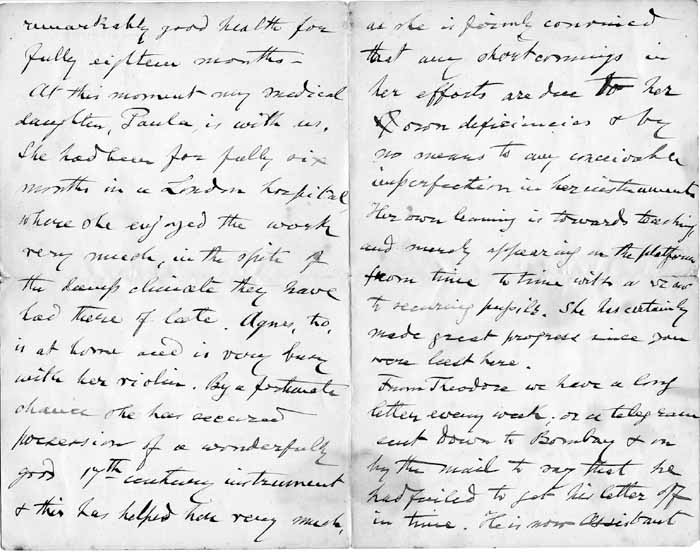 remarkably good health for
fully eighteen months -
At this moment my medical
daughter, Paula, is with us.
She had been for fully six
months in a London hospital,
where she enjoyed the work
very much, in the spite of
the damp climate they have
had there of late. Agnes, too,
is at home and is very busy
with her violin. By a fortunate
chance she has secured
possession of a wonderfully
good 17th century instrument
& this has helped her very much,
as she is firmly convinced
that any shortcomings in
her efforts are due to her
own deficiencies & by
no means to any conceivable
imperfection in her instrument.
Her own leaning is towards teaching
and merely appearing on the platform
from time to time with a view
to securing pupils. She has certainly
made great progress since you
were last here.
From Theodore we have a long
letter every week. or a telegram
sent down to Bombay & on
by the mail to say that he
had failed to get his letter off
in time. He is now Assistant